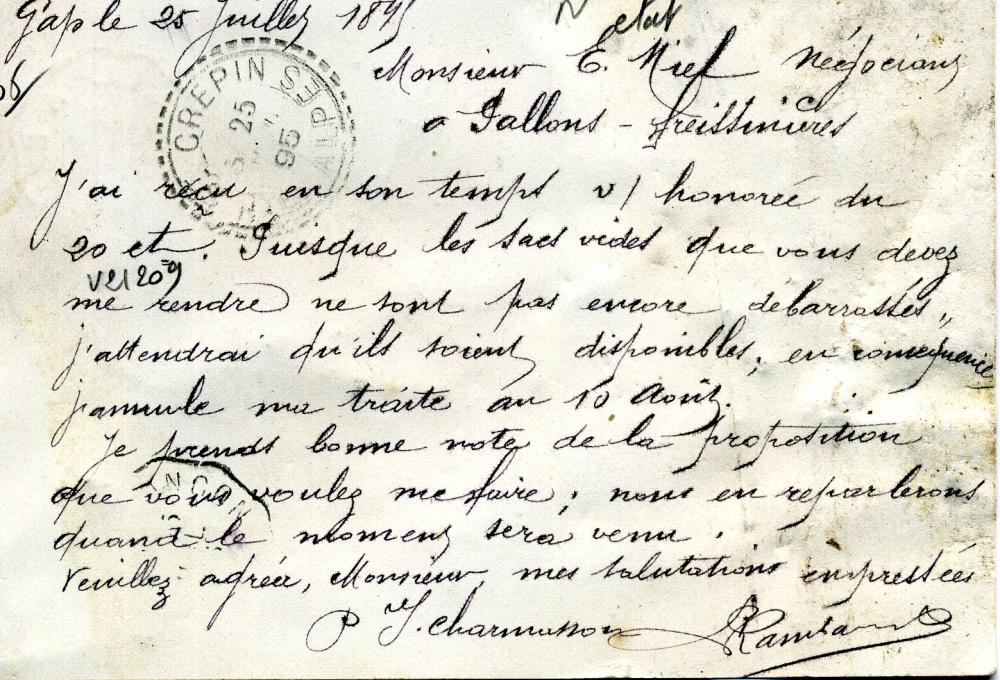 Gap le 25 Juillet 1895
état
Monsieur E. Miel Négociant
a Pallons - Freissinières
ST CREPIN HTES ALPES
25
95
J'ai reçu en son temps v/ honorée du
20 ct. Puisque les sacs vides que vous devez
V21209
me rendre ne sont pas encore débarrassés,,
j'attendrai qu'ils soient disponibles, en conséquence
j'annule ma traite au 10 Août.
Je prends bonne note de la proposition
que vous voulez me faire, nous en reparlerons
quand le moment sera venu.
Veuillez agréer, Monsieur, mes salutations empressées
P J. Charmasson